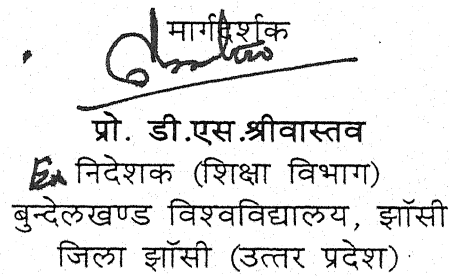 मार्गदर्शक
प्रो. डी.एस.श्रीवास्तव
Ex निदेशक (शिक्षा विभाग)
बुन्देलखण्ड विश्वविद्यालय, झाॅसी
जिला झाॅसी (उत्तर प्रदेश)